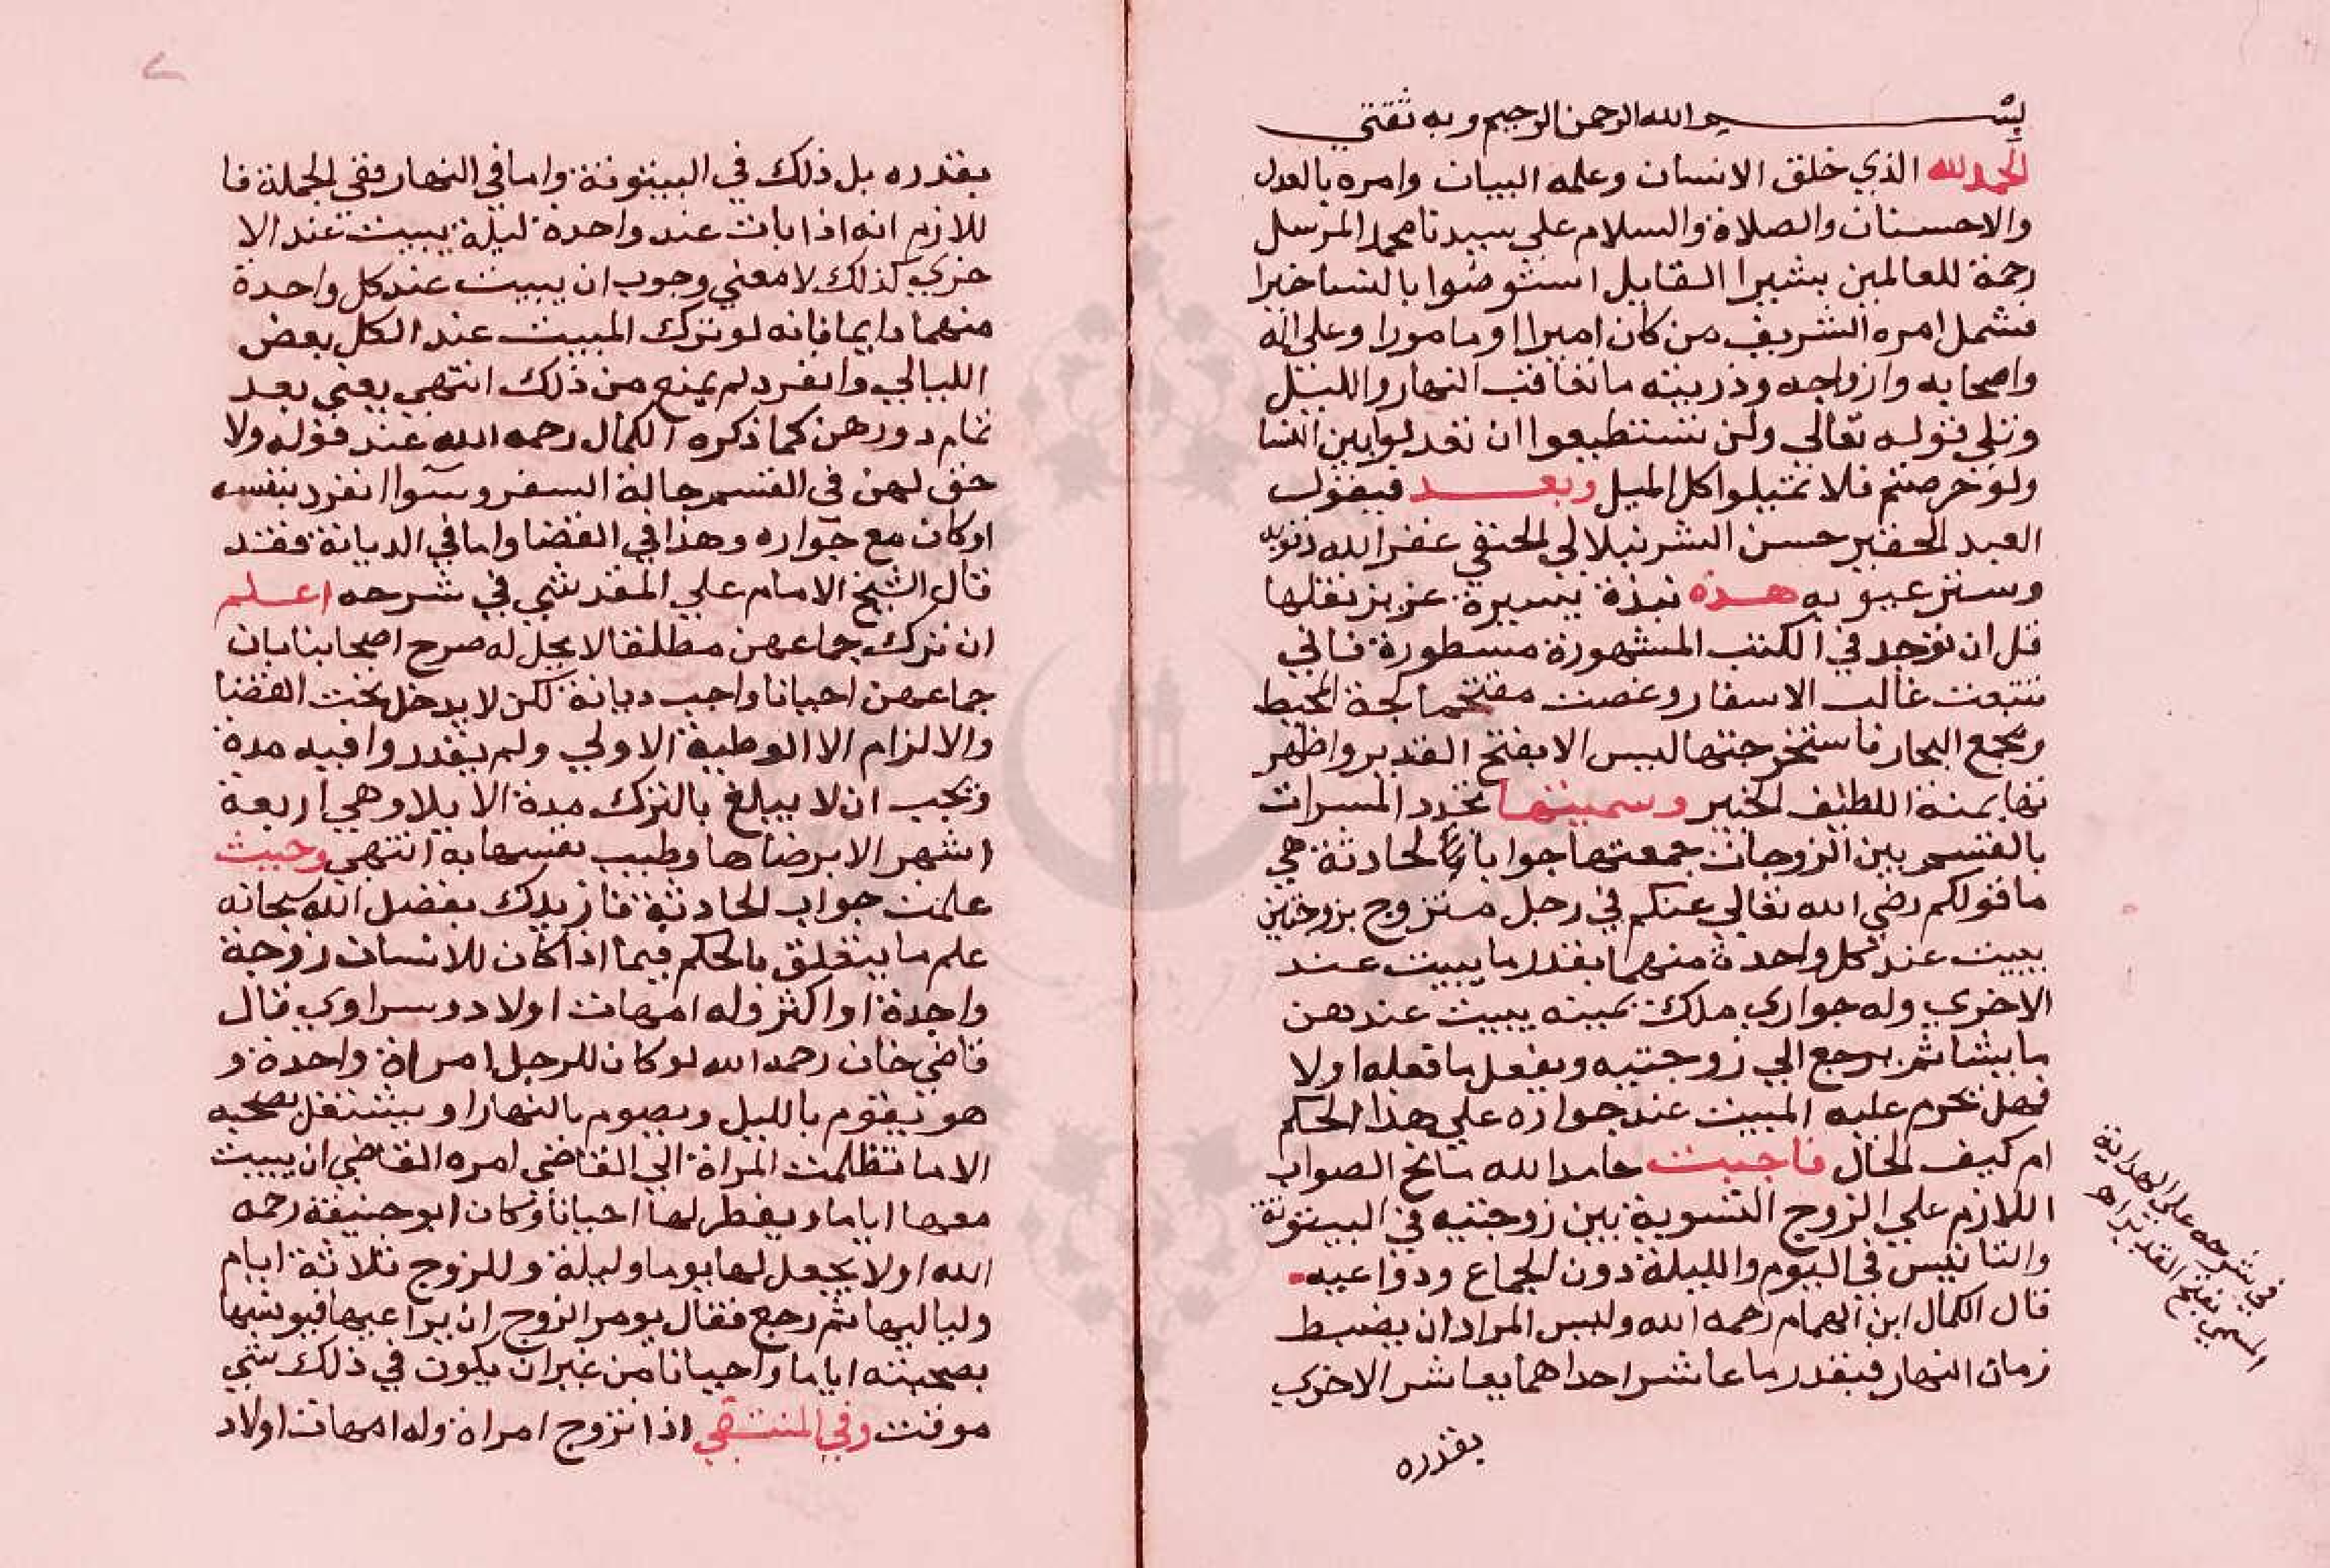 بسم الله الرحمن الرحيم وبه ثقتي
الحمد لله الذي خلق الانسان وعلمه البيان وامره بالعدل
والاحسان والصلاة والسلام علي سيدنا محمد المرسل
رحمة للعالمين بشيرا القايل استوصوا بالنسا خيرا
فشمل امره الشريف من كان اميرا او مامورا وعلى اله
واصحابه وازواجه وذريته ما تعاقب النهار والليل
وتلي قوله تعالي ولن تستطيعوا ان تعدلوا بين النسا
ولو حرصتم فلا تميلوا كل الميل وبعد فيقول
العبد الحقير حسن الشرنبلالي الحنفي غفر الله ذنوبه
وستر عيوبه هذه نبذة يسيرة عزيز نقلها
قل ان توجد في الكتب المشهورة مسطورة فاني
تتبعت غالب الاسفار وغصت مقتحما لجة المحيط
ومجمع البحار فاستخرجتها ليس الا بفتح القدير واظهر
تها بمنة اللطيف الخبير وسميتها تجدد المسرات
بالقسم بين الزوجات جمعتها جوابا لحادثة هي
ما قولكم رضي الله تعالي عنكم في رجل متزوج بزوجتين
يبيت عند كل واحدة منهما بقدر ما يبيت عند
الاخري وله جواري ملك يمينه يبيت عندهن
ما يشا ثم يرجع الي زوجتيه ويفعل ما فعله اولا
فهل يحرم عليه المبيت عند جواره علي هذا الحكم
ام كيف الحال فاجبت حامدا لله مانح الصواب
اللازم علي الزوج التسوية بين زوجتيه في البيتوتة
والتانيس في اليوم والليلة دون الجماع ودواعيه
قال الكمال ابن الهمام رحمه الله وليس المراد ان يضبط
زمان النهار فبقدر ما عاشر احداهما يعاشر الاخري
بقدره
في شرحه علي الهداية
المسمي بفتح القدير اهـ
بقدره بل ذلك في البيتوتة واما في النهار ففي الجملة فا
للازم انه اذا بات عند واحدة ليلة يبيت عند الا
خري كذلك لا معني وجوب ان يبيت عند كل واحدة
منهما دايما فانه لو ترك المبيت عند الكل بعض
الليالي وانفرد لم يمنع من ذلك انتهي يعني بعد
تمام دورهن كما ذكره الكمال رحمه الله عند قوله ولا
حق لهن في القسم حالة السفر وسوا انفرد بنفسه
او كان مع جواره وهذا في القضا واما في الديانة فقد
قال الشيخ الامام علي المقدسي في شرحه اعلم
ان ترك جماعهن مطلقا لا يحل له صرح اصحابنا بان
جماعهن احيانا واجب ديانة لكن لا يدخل تحت القضا
والالزام الا الوطية الاولي ولم يقدروا فيه مدة
ويجب ان لا يبلغ بالترك مدة الايلا وهي اربعة
اشهر الا برضاها وطيب نفسها به انتهي وحيث
علمت جواب الحادثة فازيدك بفضل الله سبحانه
علم ما يتعلق بالحكم فيما اذا كان للانسان زوجة
واحدة او اكثر وله امهات اولاد وسراري قال
قاضي خان رحمه الله لو كان للرجل امراة واحدة و
هو يقوم بالليل ويصوم بالنهار او يشتغل بصحبه
الاما تظلمت المراة الي القاضي امره القاضي ان يبيت
معها اياما ويفطر لها احيانا وكان ابو حنيفة رحمه
الله اولا يجعل لها يوما وليلة وللزوج ثلاثة ايام
ولياليها ثم رجع فقال يومر الزوج ان يراعيها فيونسها
بصحبته اياما واحيانا من غير ان يكون في ذلك شي
موقت وفي المنتقي اذا تزوج امراة وله امهات اولاد